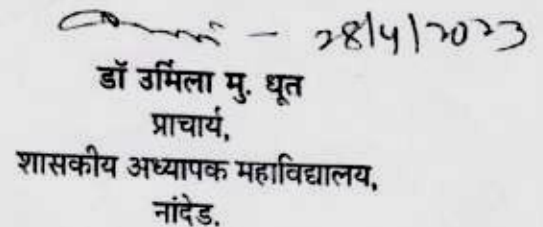 - 28/4/2023
डॉ उर्मिला मु. धूत
प्राचार्य,
शासकीय अध्यापक महाविद्यालय,
नांदेड.